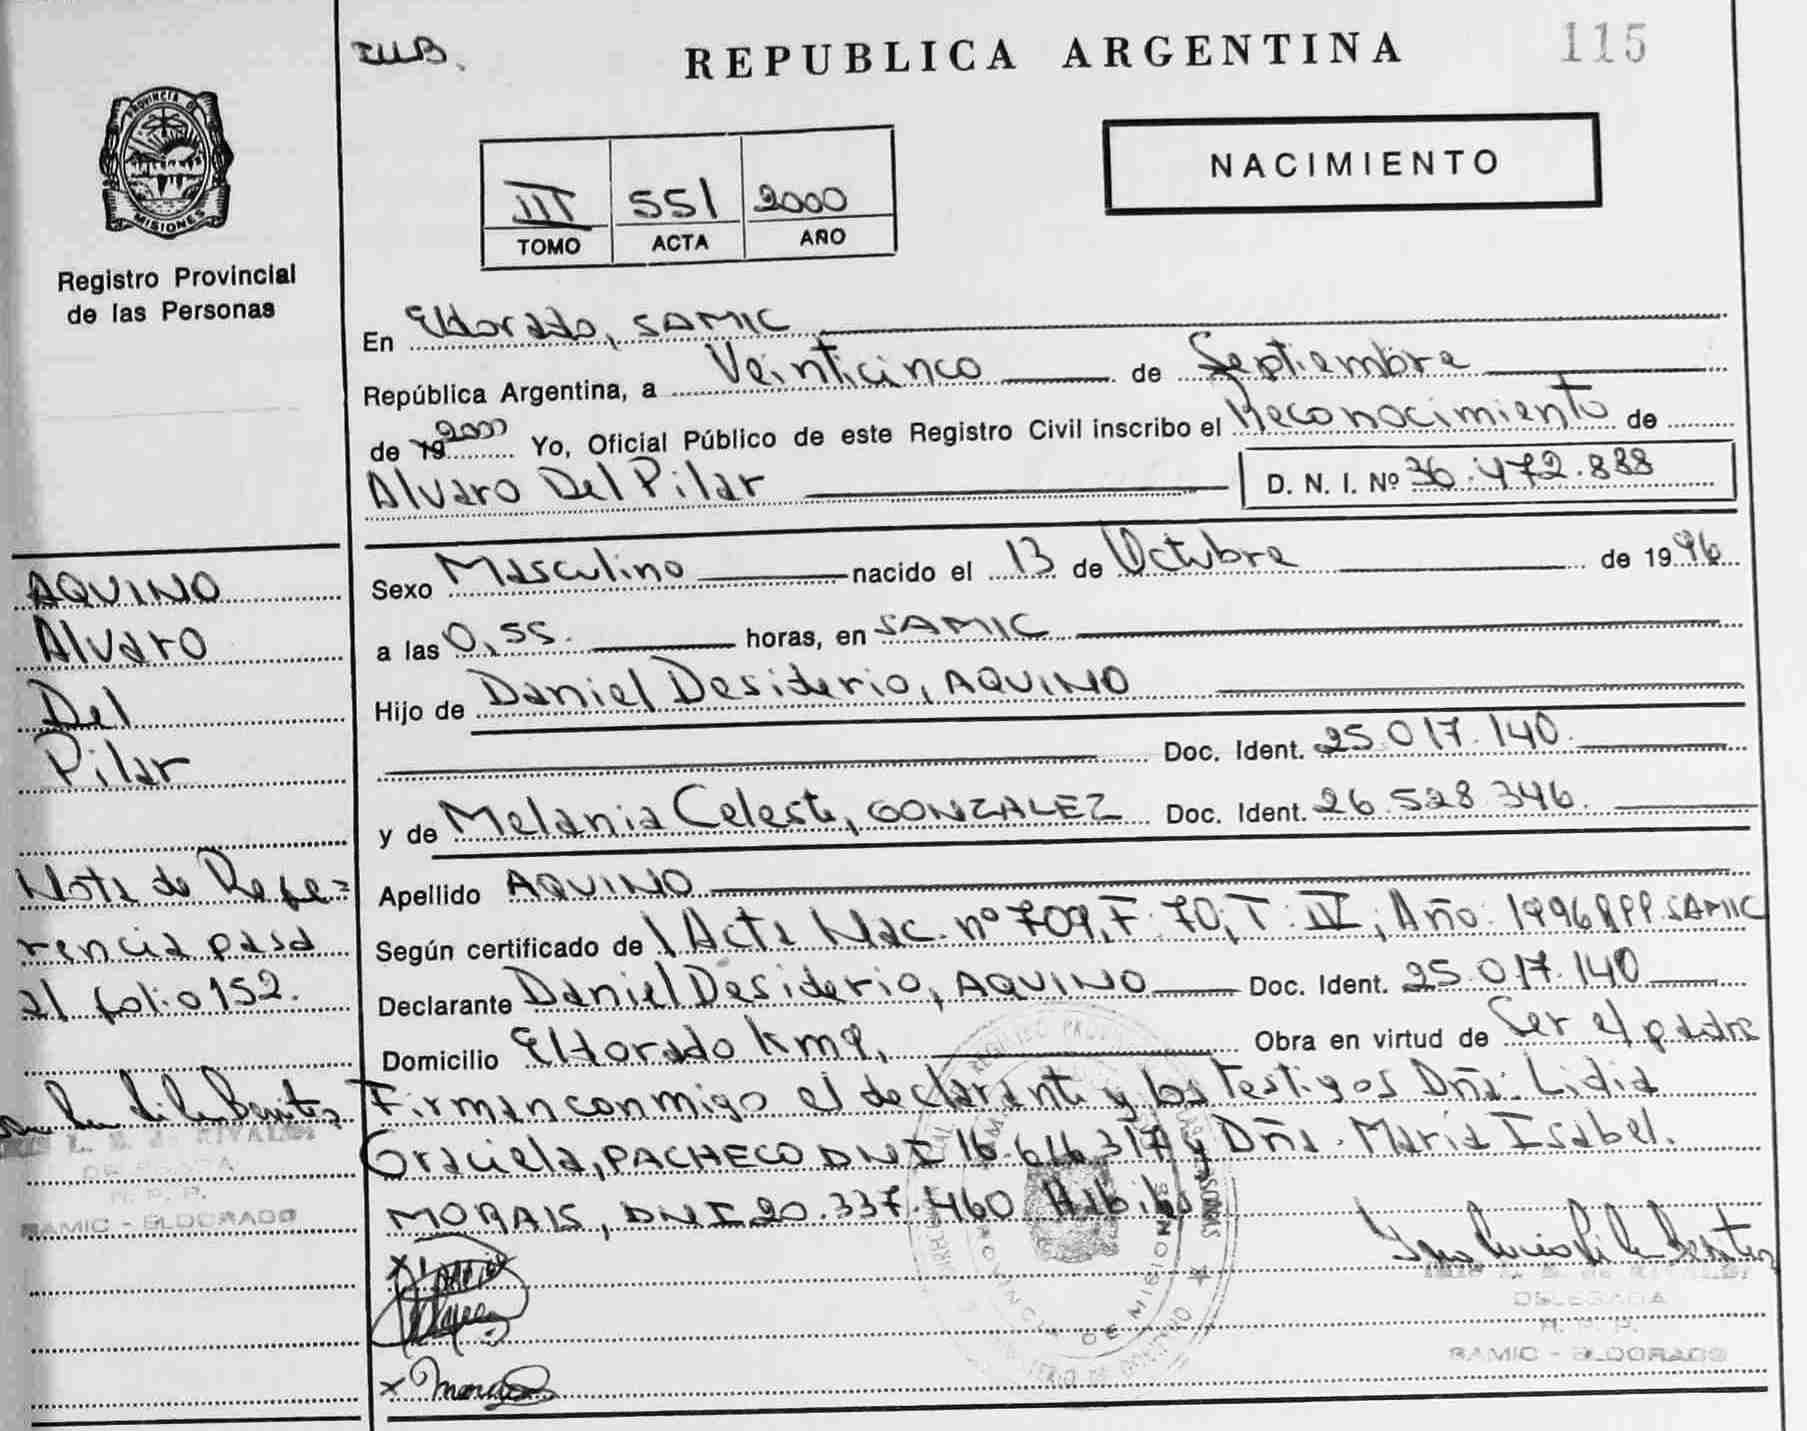 IUB.
REPUBLICA ARGENTINA
115
PROVINCIA DE
MISIONES
Registro Provincial
de las Personas
III 551 2000
TOMO ACTA AÑO
NACIMIENTO
En Eldorado, SAMIC
República Argentina, a Veinticinco de Septiembre
de 19 2000 Yo, Oficial Público de este Registro Civil inscribo el Reconocimiento de
Alvaro Del Pilar D. N. I. Nº 36.472.888
Sexo Masculino nacido el 13 de Octubre de 1996
a las 0,55. horas, en SAMIC
Hijo de Daniel Desiderio, AQUINO
Doc. Ident. 25.017.140.
y de Melania Celeste, GONZALEZ Doc. Ident. 26.528.346.
Apellido AQUINO
Según certificado de Acta Nac. nº 709, F: 70, T: IV, Año: 1996 RPP. SAMIC
Declarante Daniel Desiderio, AQUINO Doc. Ident. 25.017.140
Domicilio Eldorado km 9, Obra en virtud de Ser el padre
Firman conmigo el declarante y los Testigos Dña: Lidia
Graciela, PACHECO DNI 16.616.317 y Dña. María Isabel.
MORAIS, DNI 20.337.460 Hábiles
AQUINO
Alvaro
Del
Pilar
Nota de Refe=
rencia pasa
al folio 152.
DELEGADA
R. P. P.
SAMIC - ELDORADO
DELEGADA
R. P. P.
SAMIC - ELDORADO